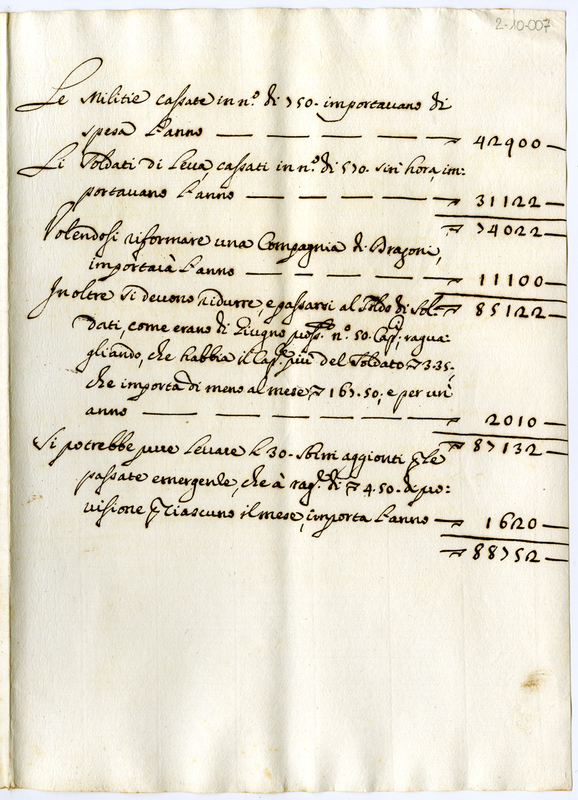 2-10-007
Le Militie cassate in n.º di 750. importauano di
spesa l'anno — — — — — 42900—
Li Soldati di Leua, cassati in n.º di 570. sin' hora, im:
portauano l'anno — — — — 31122—
74022—
Volendosi riformare una Compagnia di Dragoni,
importarà l'anno — — — — 11100—
Inoltre si deuono ridurre, e passarsi al soldo di Sol- 85122—
dati, come erano di Giugno poss.º n.º 50. Cap.i; ragua:
gliando, che habbia il Cap.e più del Soldato 3.35.
che importa di meno al mese 167.50; e per un'
anno — — — — — — 2010—
Si potrebbe pure leuare l 30. sbirri aggionti p le 87132—
passate emergenze, che à rag.e di 4.50. di pro:
uisione p ciascuno il mese, importa l'anno — 1620—
88752—